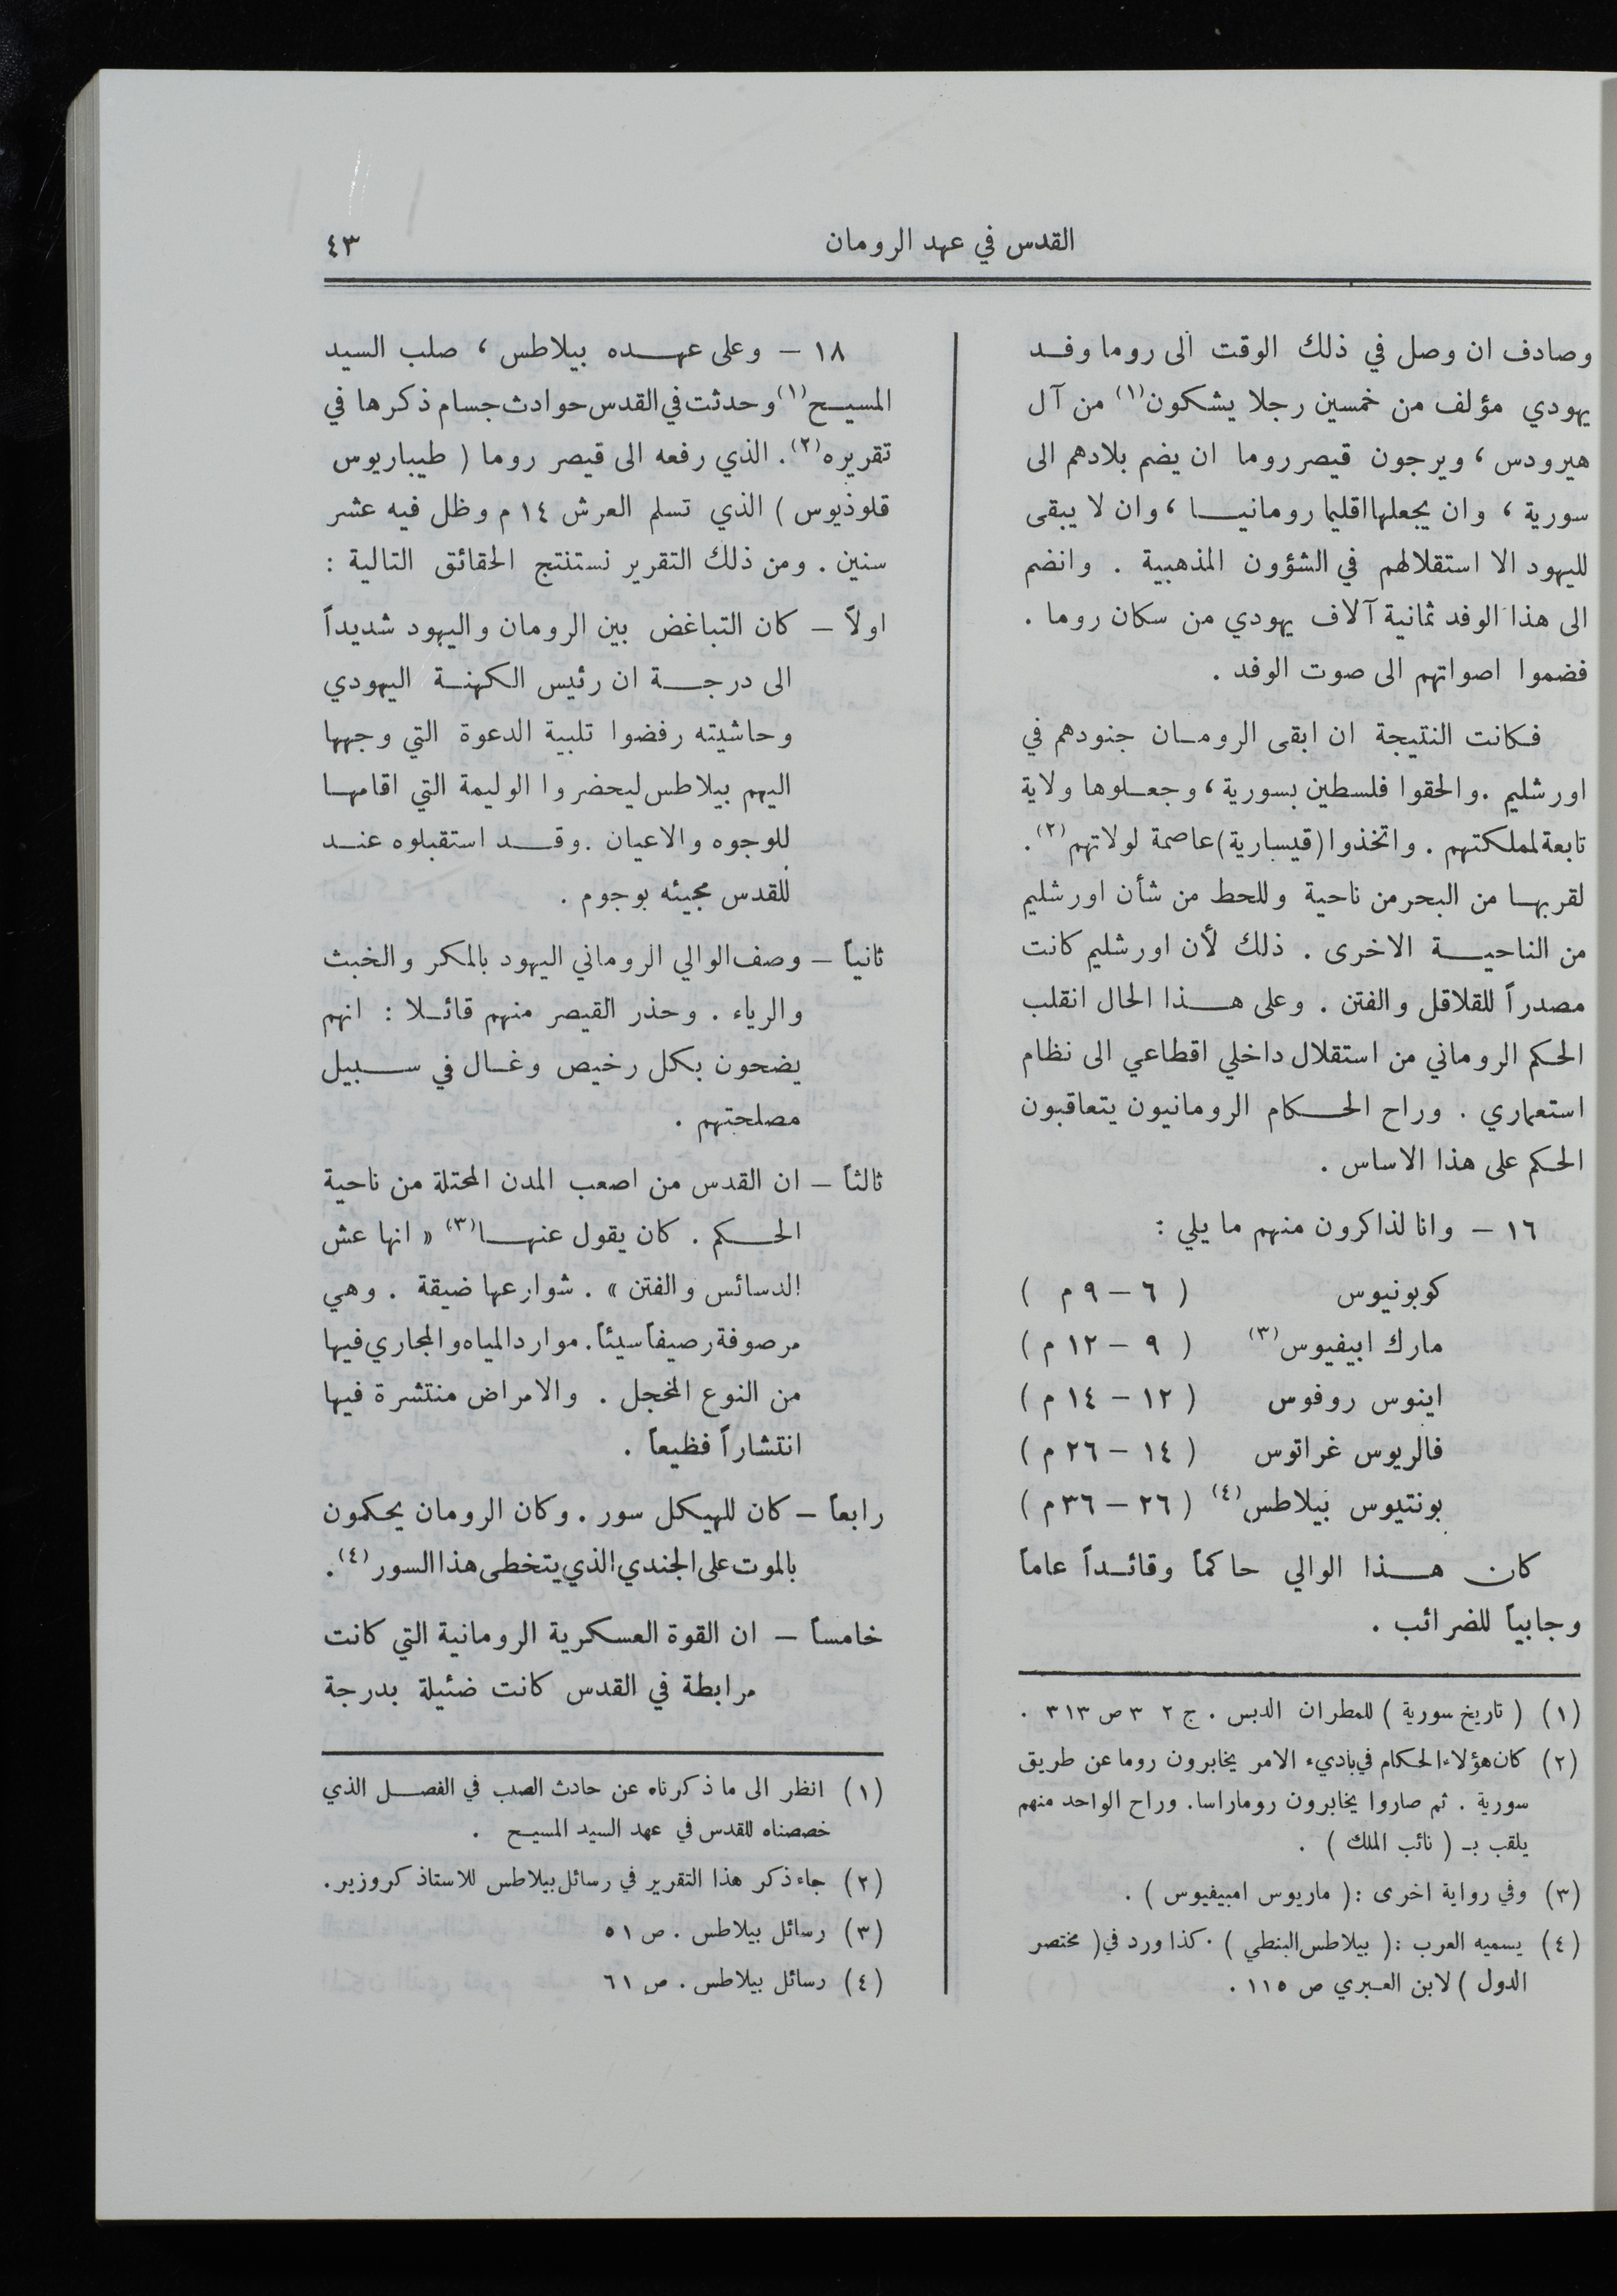 القدس في عهد الرومان
٤٣
وصادف ان وصل في ذلك الوقت الى روما وفد
يهودي مؤلف من خمسين رجلا يشكون (١) من آل
هيرودس ، ويرجون قيصر روما ان يضم بلادهم الى
سورية ، وان يجعلها اقليما رومانيا ، وان لا يبقى
لليهود الا استقلالهم في الشؤون المذهبية . وانضم
الى هذا الوفد ثمانية آلاف يهودي من سكان روما .
فضموا اصواتهم الى صوت الوفد .
فكانت النتيجة ان ابقى الرومان جنودهم في
اورشليم . والحقوا فلسطين بسورية ، وجعلوها ولاية
تابعة لمملكتهم . واتخذوا (قيسارية) عاصمة لولاتهم (٢) .
لقربها من البحر من ناحية وللحط من شأن اورشليم
من الناحية الاخرى . ذلك لأن اورشليم كانت
مصدراً للقلاقل والفتن . وعلى هذا الحال انقلب
الحكم الروماني من استقلال داخلي اقطاعي الى نظام
استعماري . وراح الحكام الرومانيون يتعاقبون
الحكم على هذا الاساس .
١٦ – وانا لذاكرون منهم ما يلي :
كوبونيوس ( ٦ – ٩ م )
مارك ابيفيوس (٣) ( ٩ – ١٢ م )
اينوس روفوس ( ١٢ – ١٤ م )
فالريوس غراتوس ( ١٤ – ٢٦ م )
بونتيوس بيلاطس (٤) ( ٢٦ – ٣٦ م )
كان هذا الوالي حاكماً وقائداً عاماً
وجابياً للضرائب .
(١) ( تاريخ سورية ) للمطران الدبس . ج ٢ ٣ ص ٣١٣ .
(٢) كان هؤلاء الحكام في باديء الامر يخابرون روما عن طريق
سورية . ثم صاروا يخابرون روما راسا . وراح الواحد منهم
يلقب بـ ( نائب الملك ) .
(٣) وفي رواية اخرى : ( ماريوس امبيفيوس ) .
(٤) يسميه العرب : ( بيلاطس البنطي ) . كذا ورد في ( مختصر
الدول ) لابن العبري ص ١١٥ .
١٨ – وعلى عهده بيلاطس ، صلب السيد
المسيح (١) وحدثت في القدس حوادث جسام ذكرها في
تقريره (٢) . الذي رفعه الى قيصر روما ( طيباريوس
قلوذيوس ) الذي تسلم العرش ١٤ م وظل فيه عشر
سنين . ومن ذلك التقرير نستنتج الحقائق التالية :
اولاً – كان التباغض بين الرومان واليهود شديداً
الى درجة ان رئيس الكهنة اليهودي
وحاشيته رفضوا تلبية الدعوة التي وجهها
اليهم بيلاطس ليحضروا الوليمة التي اقامها
للوجوه والاعيان . وقد استقبلوه عند
للقدس مجيئه بوجوم .
ثانياً – وصف الوالي الروماني اليهود بالمكر والخبث
والرياء . وحذر القيصر منهم قائلا : انهم
يضحون بكل رخيص وغال في سبيل
مصلحتهم .
ثالثاً – ان القدس من اصعب المدن المحتلة من ناحية
الحكم . كان يقول عنها (٣) « انها عش
الدسائس والفتن » . شوارعها ضيقة . وهي
مرصوفة رصيفاً سيئاً . موارد المياه والمجاري فيها
من النوع المخجل . والامراض منتشرة فيها
انتشاراً فظيعاً .
رابعاً – كان للهيكل سور . وكان الرومان يحكمون
بالموت على الجندي الذي يتخطى هذا السور (٤) .
خامساً – ان القوة العسكرية الرومانية التي كانت
مرابطة في القدس كانت ضئيلة بدرجة
(١) انظر الى ما ذكرناه عن حادث الصلب في الفصل الذي
خصصناه للقدس في عهد السيد المسيح .
(٢) جاء ذكر هذا التقرير في رسائل بيلاطس للاستاذ كروزير .
(٣) رسائل بيلاطس . ص ٥١
(٤) رسائل بيلاطس . ص ٦١